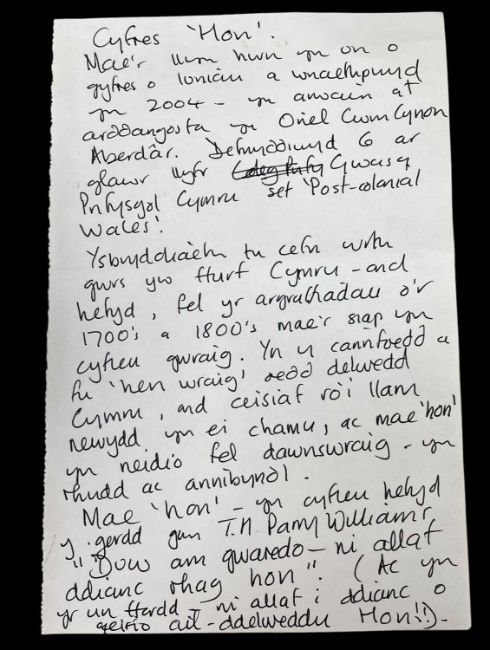 Cyfres 'Hon'.
Mae'r llun hwn yn un o
gyfres o luniau a wnaethpwyd
yn 2004 – yn arwain at
arddangosfa yn Oriel Cwm Cynon
Aberdâr. Defnyddiwyd 6 ar
glawr llyfr Gwasg
Prifysgol Cymru sef 'Post-colonial
Wales'.
Ysbrydoliaeth tu cefn wrth
gwrs yw ffurf Cymru – ond
hefyd, fel yr argraffiadau o'r
1700's a 1800's mae'r siap yn
cyfleu gwraig. Yn y canrifoedd a
fu 'hen wraig' oedd delwedd
Cymru, ond ceisiaf roi llam
newydd yn ei chamu, ac mae 'hon'
yn neidio fel dawnswraig – yn
rhydd ac annibynol.
Mae 'hon' – yn cyfleu hefyd
y gerdd gan T.H. Parry Williams
"Duw am gwaredo – ni allaf
ddianc rhag hon". (Ac yn
yr un ffordd – ni allaf i ddianc o
geisio ail-ddelweddu Hon!!)–